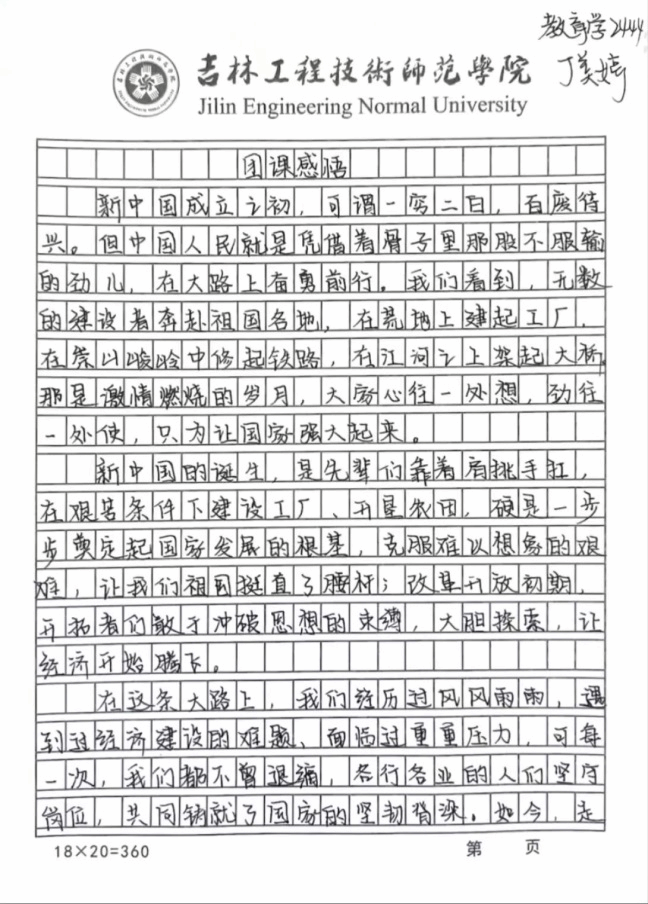 教育学2444
丁美婷
吉林工程技術師范學院
Jilin Engineering Normal University
团课感悟
新中国成立之初，可谓一穷二白，百废待
兴。但中国人民就是凭借着骨子里那股不服输
的劲儿，在大路上奋勇前行。我们看到，无数
的建设者奔赴祖国各地，在荒地上建起工厂，
在崇山峻岭中修起铁路，在江河之上架起大桥，
那是激情燃烧的岁月，大家心往一处想，劲往
一处使，只为让国家强大起来。
新中国的诞生，是先辈们靠着肩挑手扛，
在艰苦条件下建设工厂、开垦农田，硬是一步
步奠定起国家发展的根基，克服难以想象的艰
难，让我们祖国挺直了腰杆；改革开放初期，
开拓者们敢于冲破思想的束缚，大胆探索，让
经济开始腾飞。
在这条大路上，我们经历过风风雨雨，遇
到过经济建设的难题、面临过重重压力，可每
一次，我们都不曾退缩，各行各业的人们坚守
岗位，共同铸就了国家的坚韧脊梁。如今，走
18×20=360
第 页